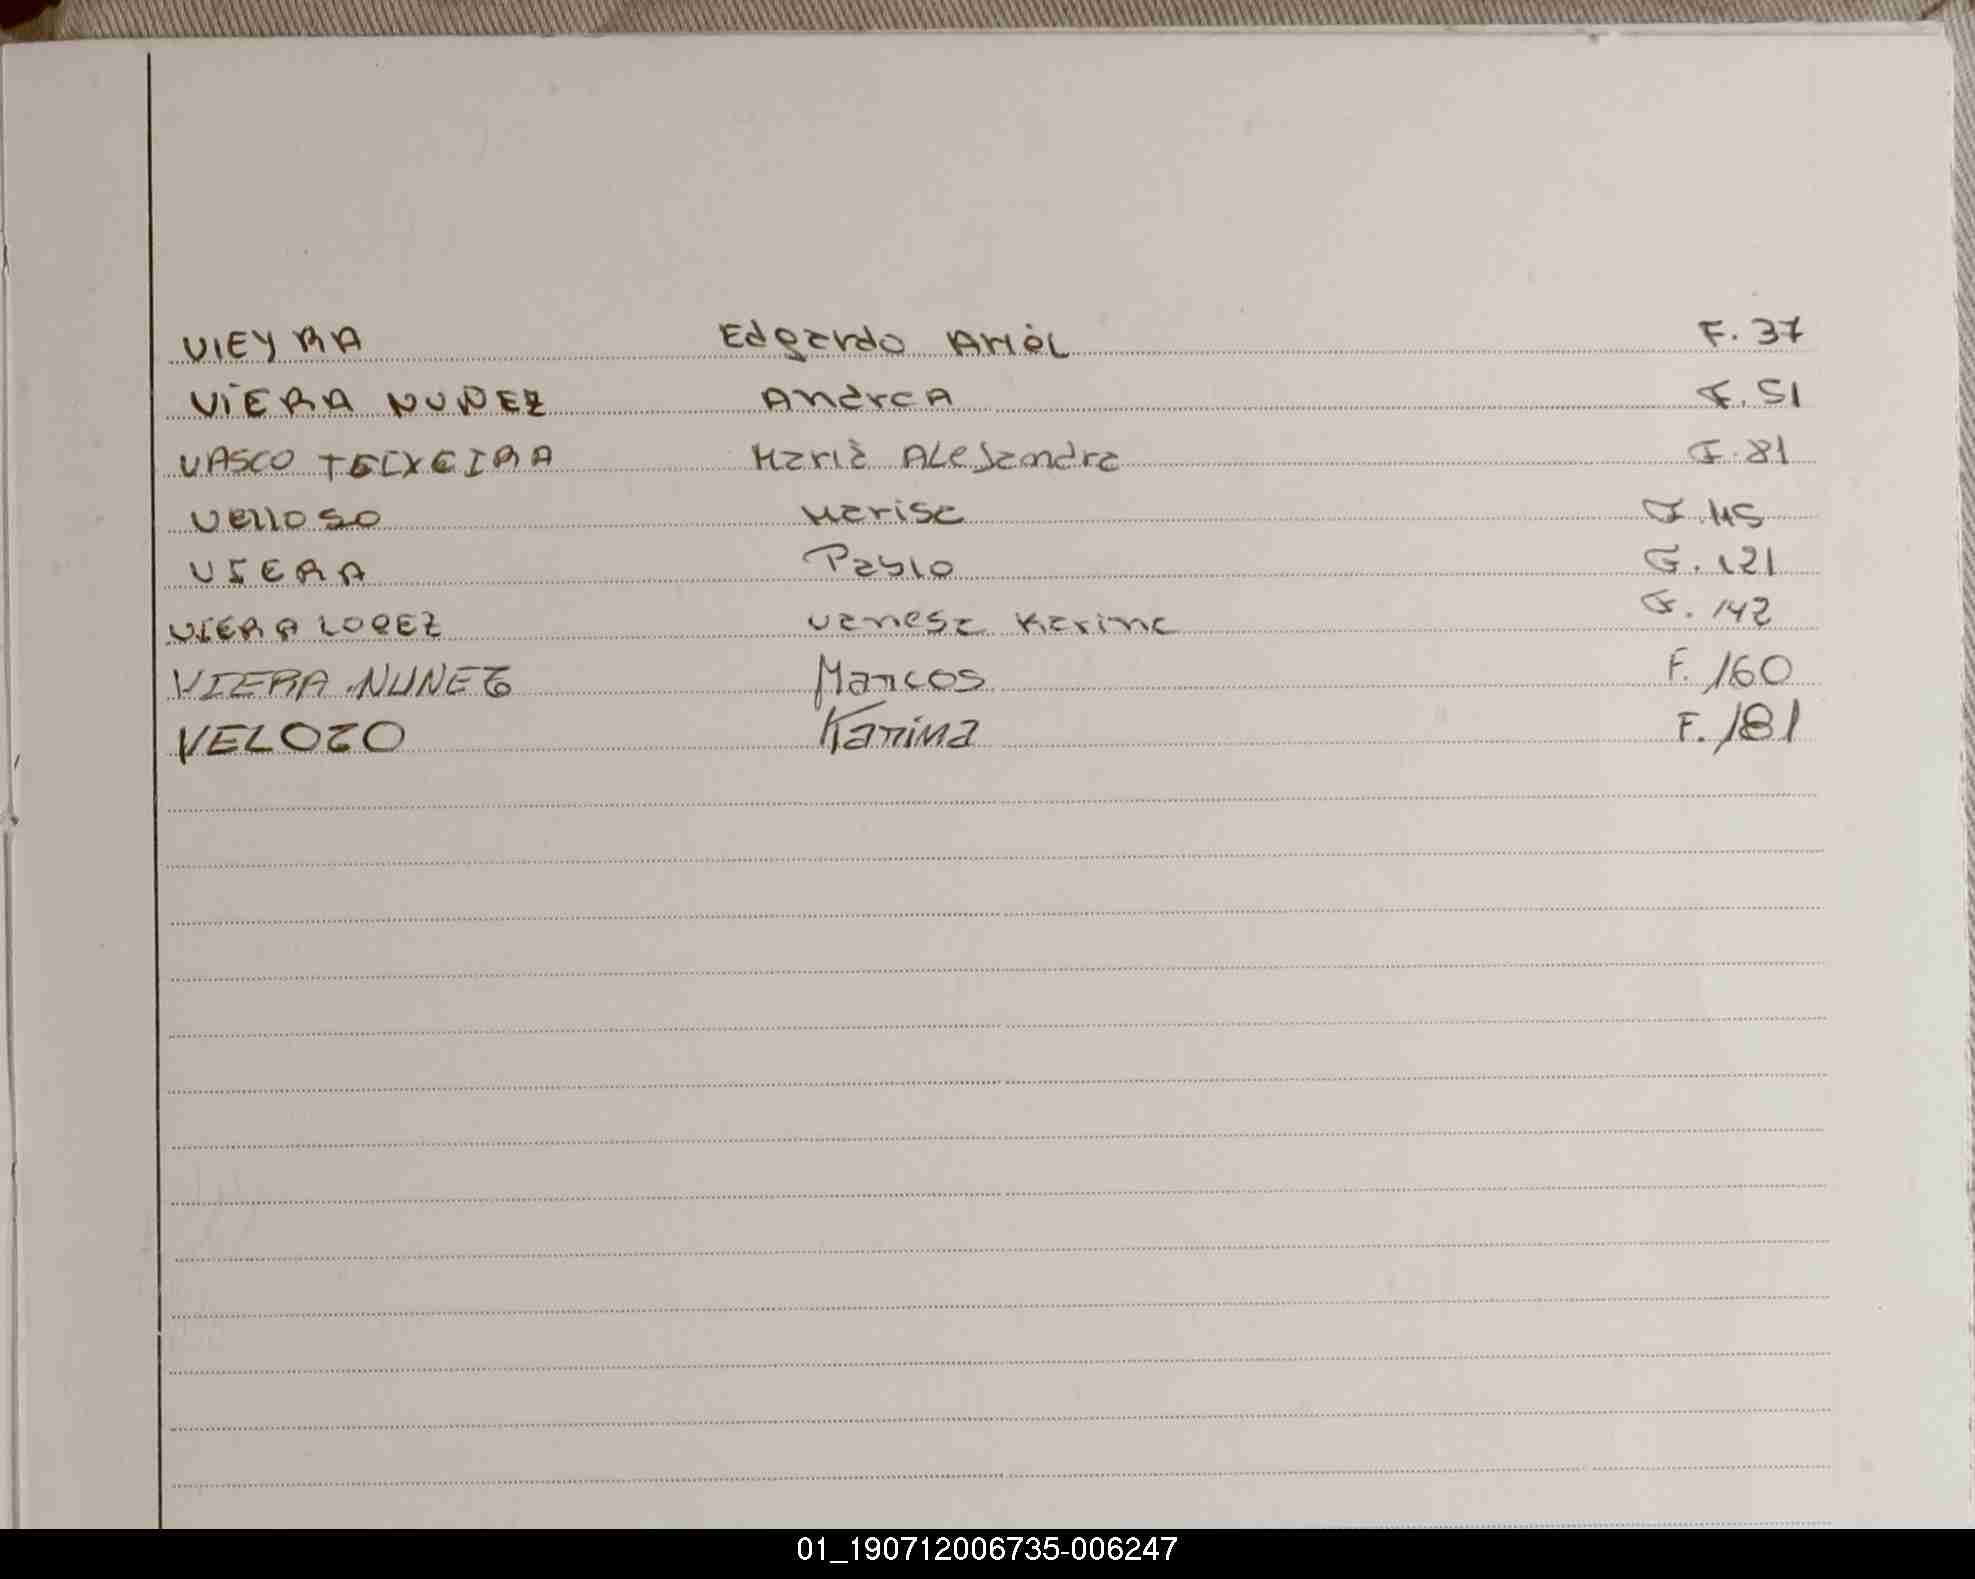 VIEYRA Edgardo Ariel F. 37
VIERA NUÑEZ Andrea F. 51
VASCO TEIXEIRA Maria Alejandra F. 81
Velloso Marisa F. 115
VIERA Pablo G. 121
VIERA LOPEZ Vanesa Karina F. 142
VIERA NUNEZ Marcos F. 160
VELOZO Karina F. 181
01_190712006735-006247